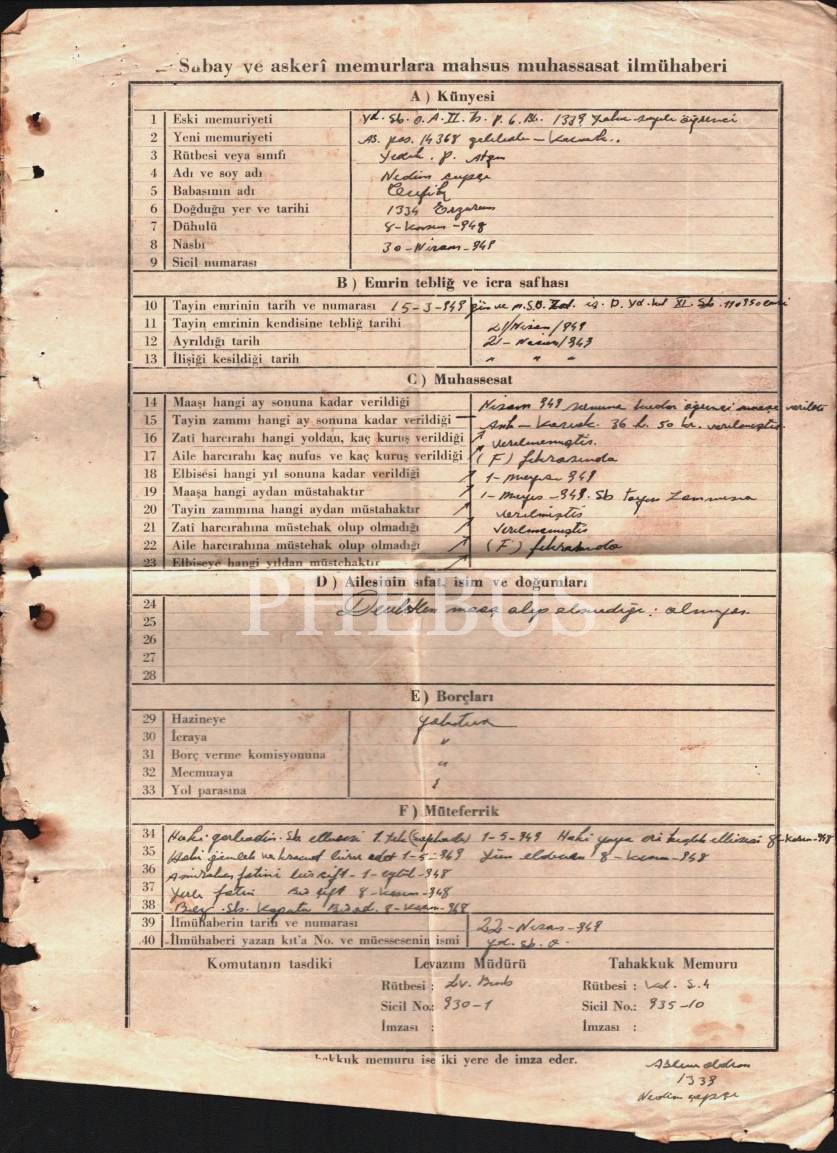 Subay ve askerî memurlara mahsus muhassasat ilmühaberi
A ) Künyesi
1 Eski memuriyeti Yd. Sb. O. A. II. Tb. P. 6. Bl. 1339 yaka sayılı öğrenci
2 Yeni memuriyeti As. pos. 14368
3 Rütbesi veya sınıfı Yedek. P. Atğm
4 Adı ve soy adı Nedim
5 Babasının adı
6 Doğduğu yer ve tarihi 1334 Erzurum
7 Dühulü 8-Kasım-948
8 Nasbı 30-Nisan-949
9 Sicil numarası
B ) Emrin tebliğ ve icra safhası
10 Tayin emrinin tarih ve numarası 15-3-949 gün ve M.S.B.
11 Tayin emrinin kendisine tebliğ tarihi 21/Nisan/949
12 Ayrıldığı tarih 21-Nisan/949
13 İlişiği kesildiği tarih " " "
C ) Muhassesat
14 Maaşı hangi ay sonuna kadar verildiği Nisan 949 sonuna kadar öğrenci maaşı verildi
15 Tayin zammı hangi ay sonuna kadar verildiği
16 Zati harcırahı hangi yoldan, kaç kuruş verildiği 36 L. 50 kr. verilmiştir.
17 Aile harcırahı kaç nufus ve kaç kuruş verildiği verilmemiştir.
18 Elbisesi hangi yıl sonuna kadar verildiği (F) fıkrasında
19 Maaşa hangi aydan müstahaktır 1-mayıs-949
20 Tayin zammına hangi aydan müstahaktır 1-mayıs-949. Sb tayın zammına
21 Zati harcırahına müstehak olup olmadığı verilmiştir
22 Aile harcırahına müstehak olup olmadığı verilmemiştir
23 Elbiseye hangi yıldan müstehaktır (F) fıkrasında
D ) Ailesinin sıfat, isim ve doğumları
24 Devletten maaş alıp almadığı: almıyor
25
26
27
28
PHEBUS
E ) Borçları
29 Hazineye yoktur
30 İcraya "
31 Borç verme komisyonuna "
32 Mecmuaya "
33 Yol parasına
F ) Müteferrik
34 Haki 1-5-949 Haki 8-Kasım-948
35 1-5-949 8-Kasım-948
36 fotini bir çift-1-eylül-948
37 fotin Bir çift 8-Kasım-948
38 Bey. Sb. Kaputu Bir ad. 8-Kasım-948
39 İlmühaberin tarih ve numarası 22-Nisan-949
40 İlmühaberi yazan kıt'a No. ve müessesenin ismi Yd. Sb. O.
Komutanın tasdiki Levazım Müdürü Tahakkuk Memuru
Rütbesi : Lv. Bnb Rütbesi : Kd.
Sicil No.: 930-1 Sicil No.: 935-10
İmzası : İmzası :
hakkuk memuru ise iki yere de imza eder.
Aslını aldım
1339
Nedim